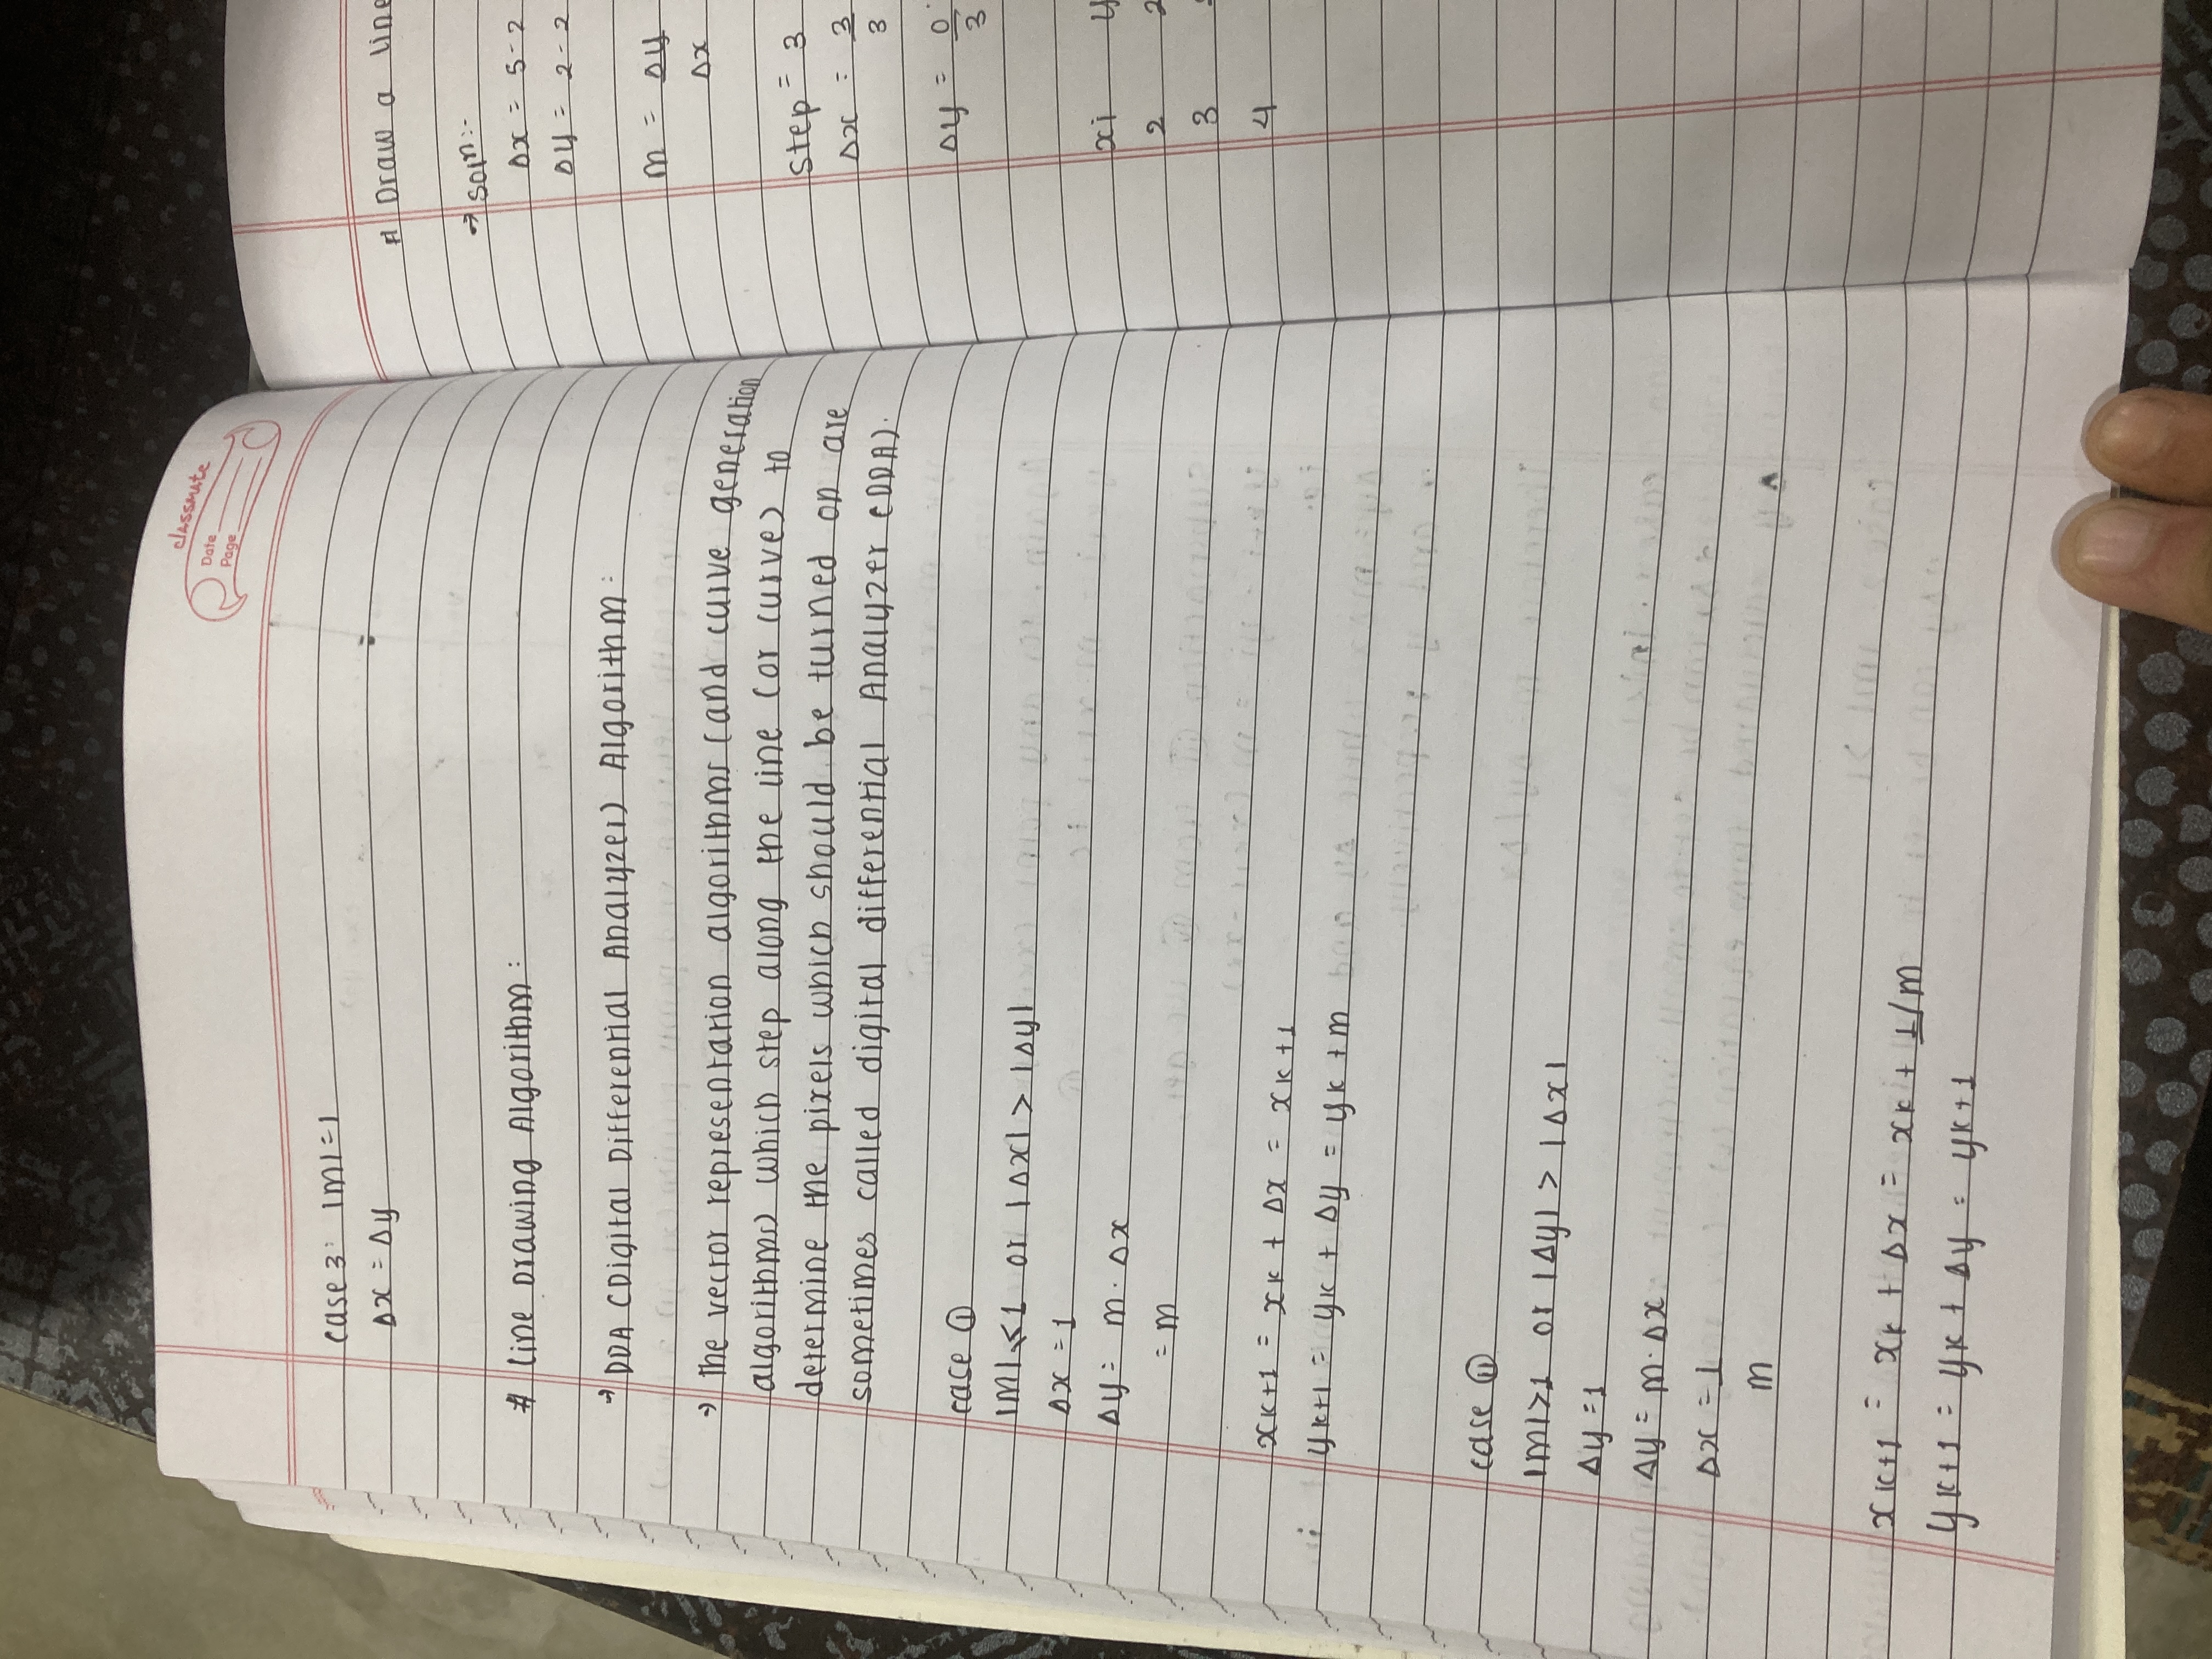 classmate
Date
Page
case 3: |m|=1
Δx = Δy
# Line Drawing Algorithm:
→ DDA (Digital Differential Analyzer) Algorithm:
→ The vector representation algorithms (and curve generation
algorithms) which step along the line (or curve) to
determine the pixels which should be turned on are
sometimes called digital differential Analyzer (DDA).
case ①
|m|≤1 or |Δx| > |Δy|
Δx = 1
Δy = m · Δx
= m
xk+1 = xk + Δx = xk+1
yk+1 = yk + Δy = yk + m
case ⑪
|m|>1 or |Δy| > |Δx|
Δy = 1
Δy = m · Δx
Δx = 1
m
xk+1 = xk + Δx = xk + 1/m
yk+1 = yk + Δy = yk+1
# Draw a line
→ Soln:-
Δx = 5-2
Δy = 2-2
m = Δy
Δx
step = 3
Δx = 3
3
Δy = 0
3
xi y
2 2
3
4